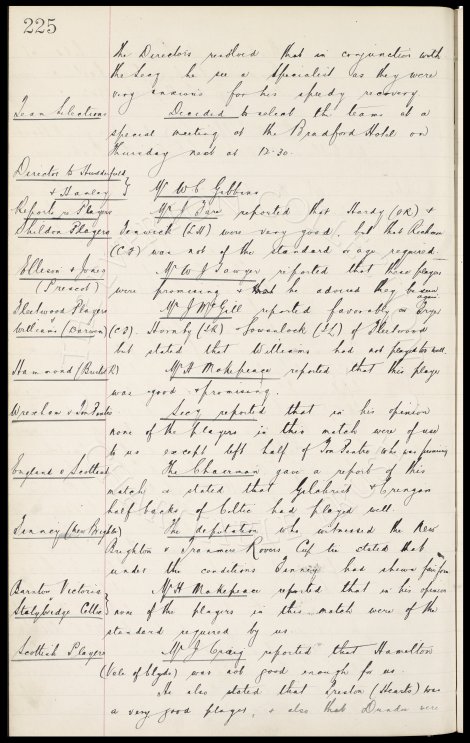 225
The Directors resolved that in conjunction with
the Secy he see a Specialist as they were
very anxious for his speedy recovery
Team Selections Decided to select the teams at a
special meeting at the Bradford Hotel on
Thursday next at 12-30.
Director to Huddersfield
& Hanley } Mr W C Gibbins
Reports re Players Mr J Fare reported that Hardy (OR) &
Sheldon Players Fenwick (LH) were very good, but that
(CF) was not of the standard or age required.
Elleson & Jones Mr W J Sawyer reported that these players
(Prescot) were promising & he advised they be seen
again
Fleetwood Players Mr J McGill reported favorably on
Williams (Darwen) (CF). Hornby (IR) (IL) of Fleetwood
but stated that Williams had not played too well.
Hammond ( ) Mr H Makepeace reported that this player
was good & promising.
Wrexham v Ton Pentre Secy reported that in his opinion
none of the players in this match were of use
to us except left half of Ton Pentre who was promising
England v Scotland The Chairman gave a report of this
match & stated that Gilchrist & Cringan
half backs of Celtic had played well.
Finney (New Brighton) The deputation who witnessed the New
Brighton v Tranmere Rovers Cup tie stated that
under the conditions Finney had shewn fair form
Barnton Victoria } Mr H Makepeace reported that in his opinion
Stalybridge Celtic } none of the players in this match were of the
standard required by us.
Scottish Players Mr J Craig reported that Hamilton
(Vale of Clyde) was not good enough for us.
He also stated that Preston (Hearts) was
a very good player, & also that Dundee were